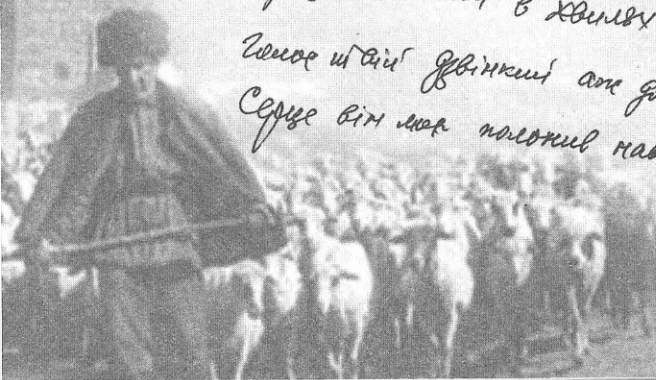 в хвилях
Голос твій дзвінкий аж до
Серце він моє полонив нав